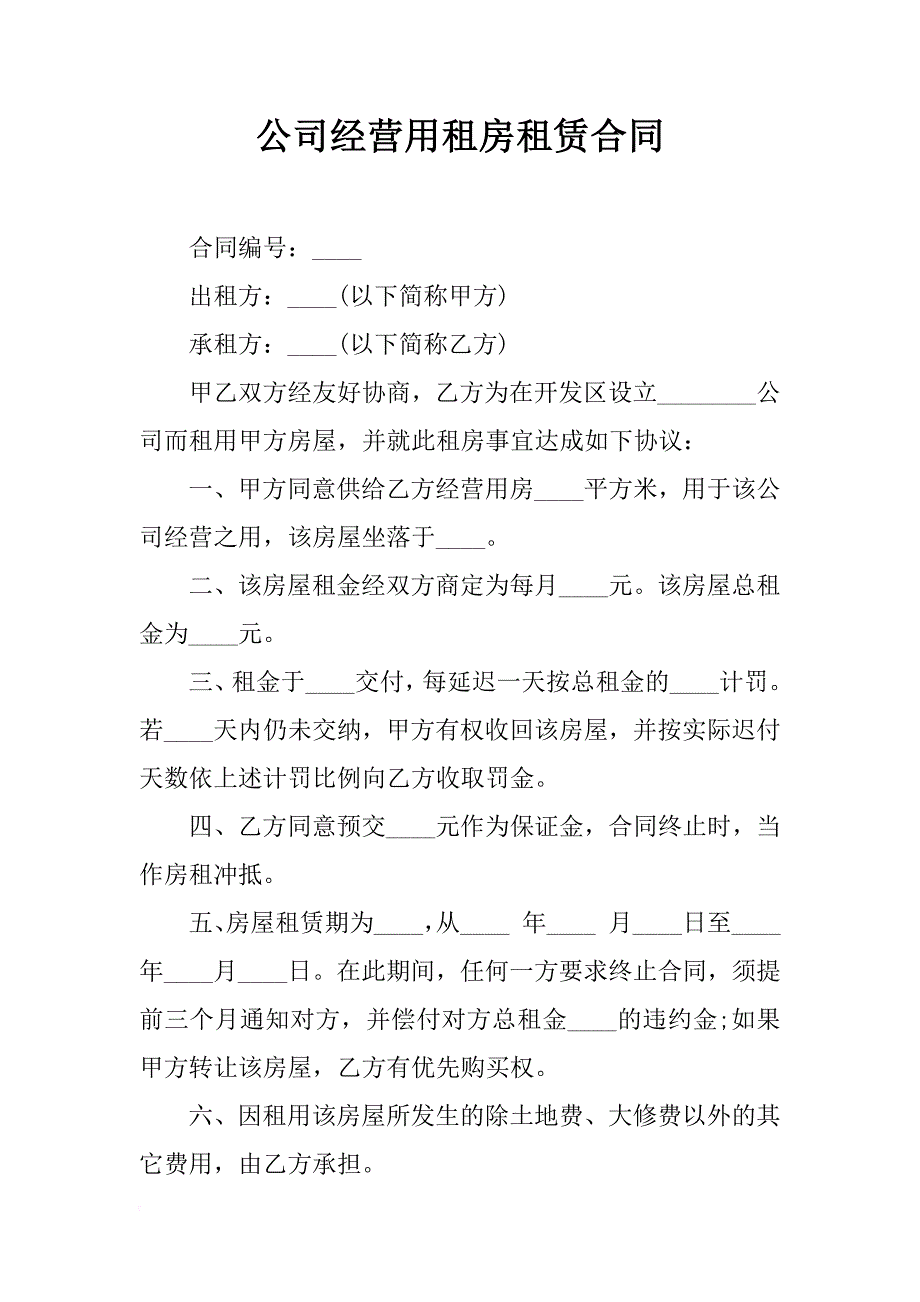 公司经营用租房租赁合同
合同编号：____
出租方：____(以下简称甲方)
承租方：____(以下简称乙方)
甲乙双方经友好协商，乙方为在开发区设立________公
司而租用甲方房屋，并就此租房事宜达成如下协议：
一、甲方同意供给乙方经营用房____平方米，用于该公
司经营之用，该房屋坐落于____。
二、该房屋租金经双方商定为每月____元。该房屋总租
金为____元。
三、租金于____交付，每延迟一天按总租金的____计罚。
若____天内仍未交纳，甲方有权收回该房屋，并按实际迟付
天数依上述计罚比例向乙方收取罚金。
四、乙方同意预交____元作为保证金，合同终止时，当
作房租冲抵。
五、房屋租赁期为____，从____ 年____ 月____日至____
年____月____日。在此期间，任何一方要求终止合同，须提
前三个月通知对方，并偿付对方总租金____的违约金;如果
甲方转让该房屋，乙方有优先购买权。
六、因租用该房屋所发生的除土地费、大修费以外的其
它费用，由乙方承担。